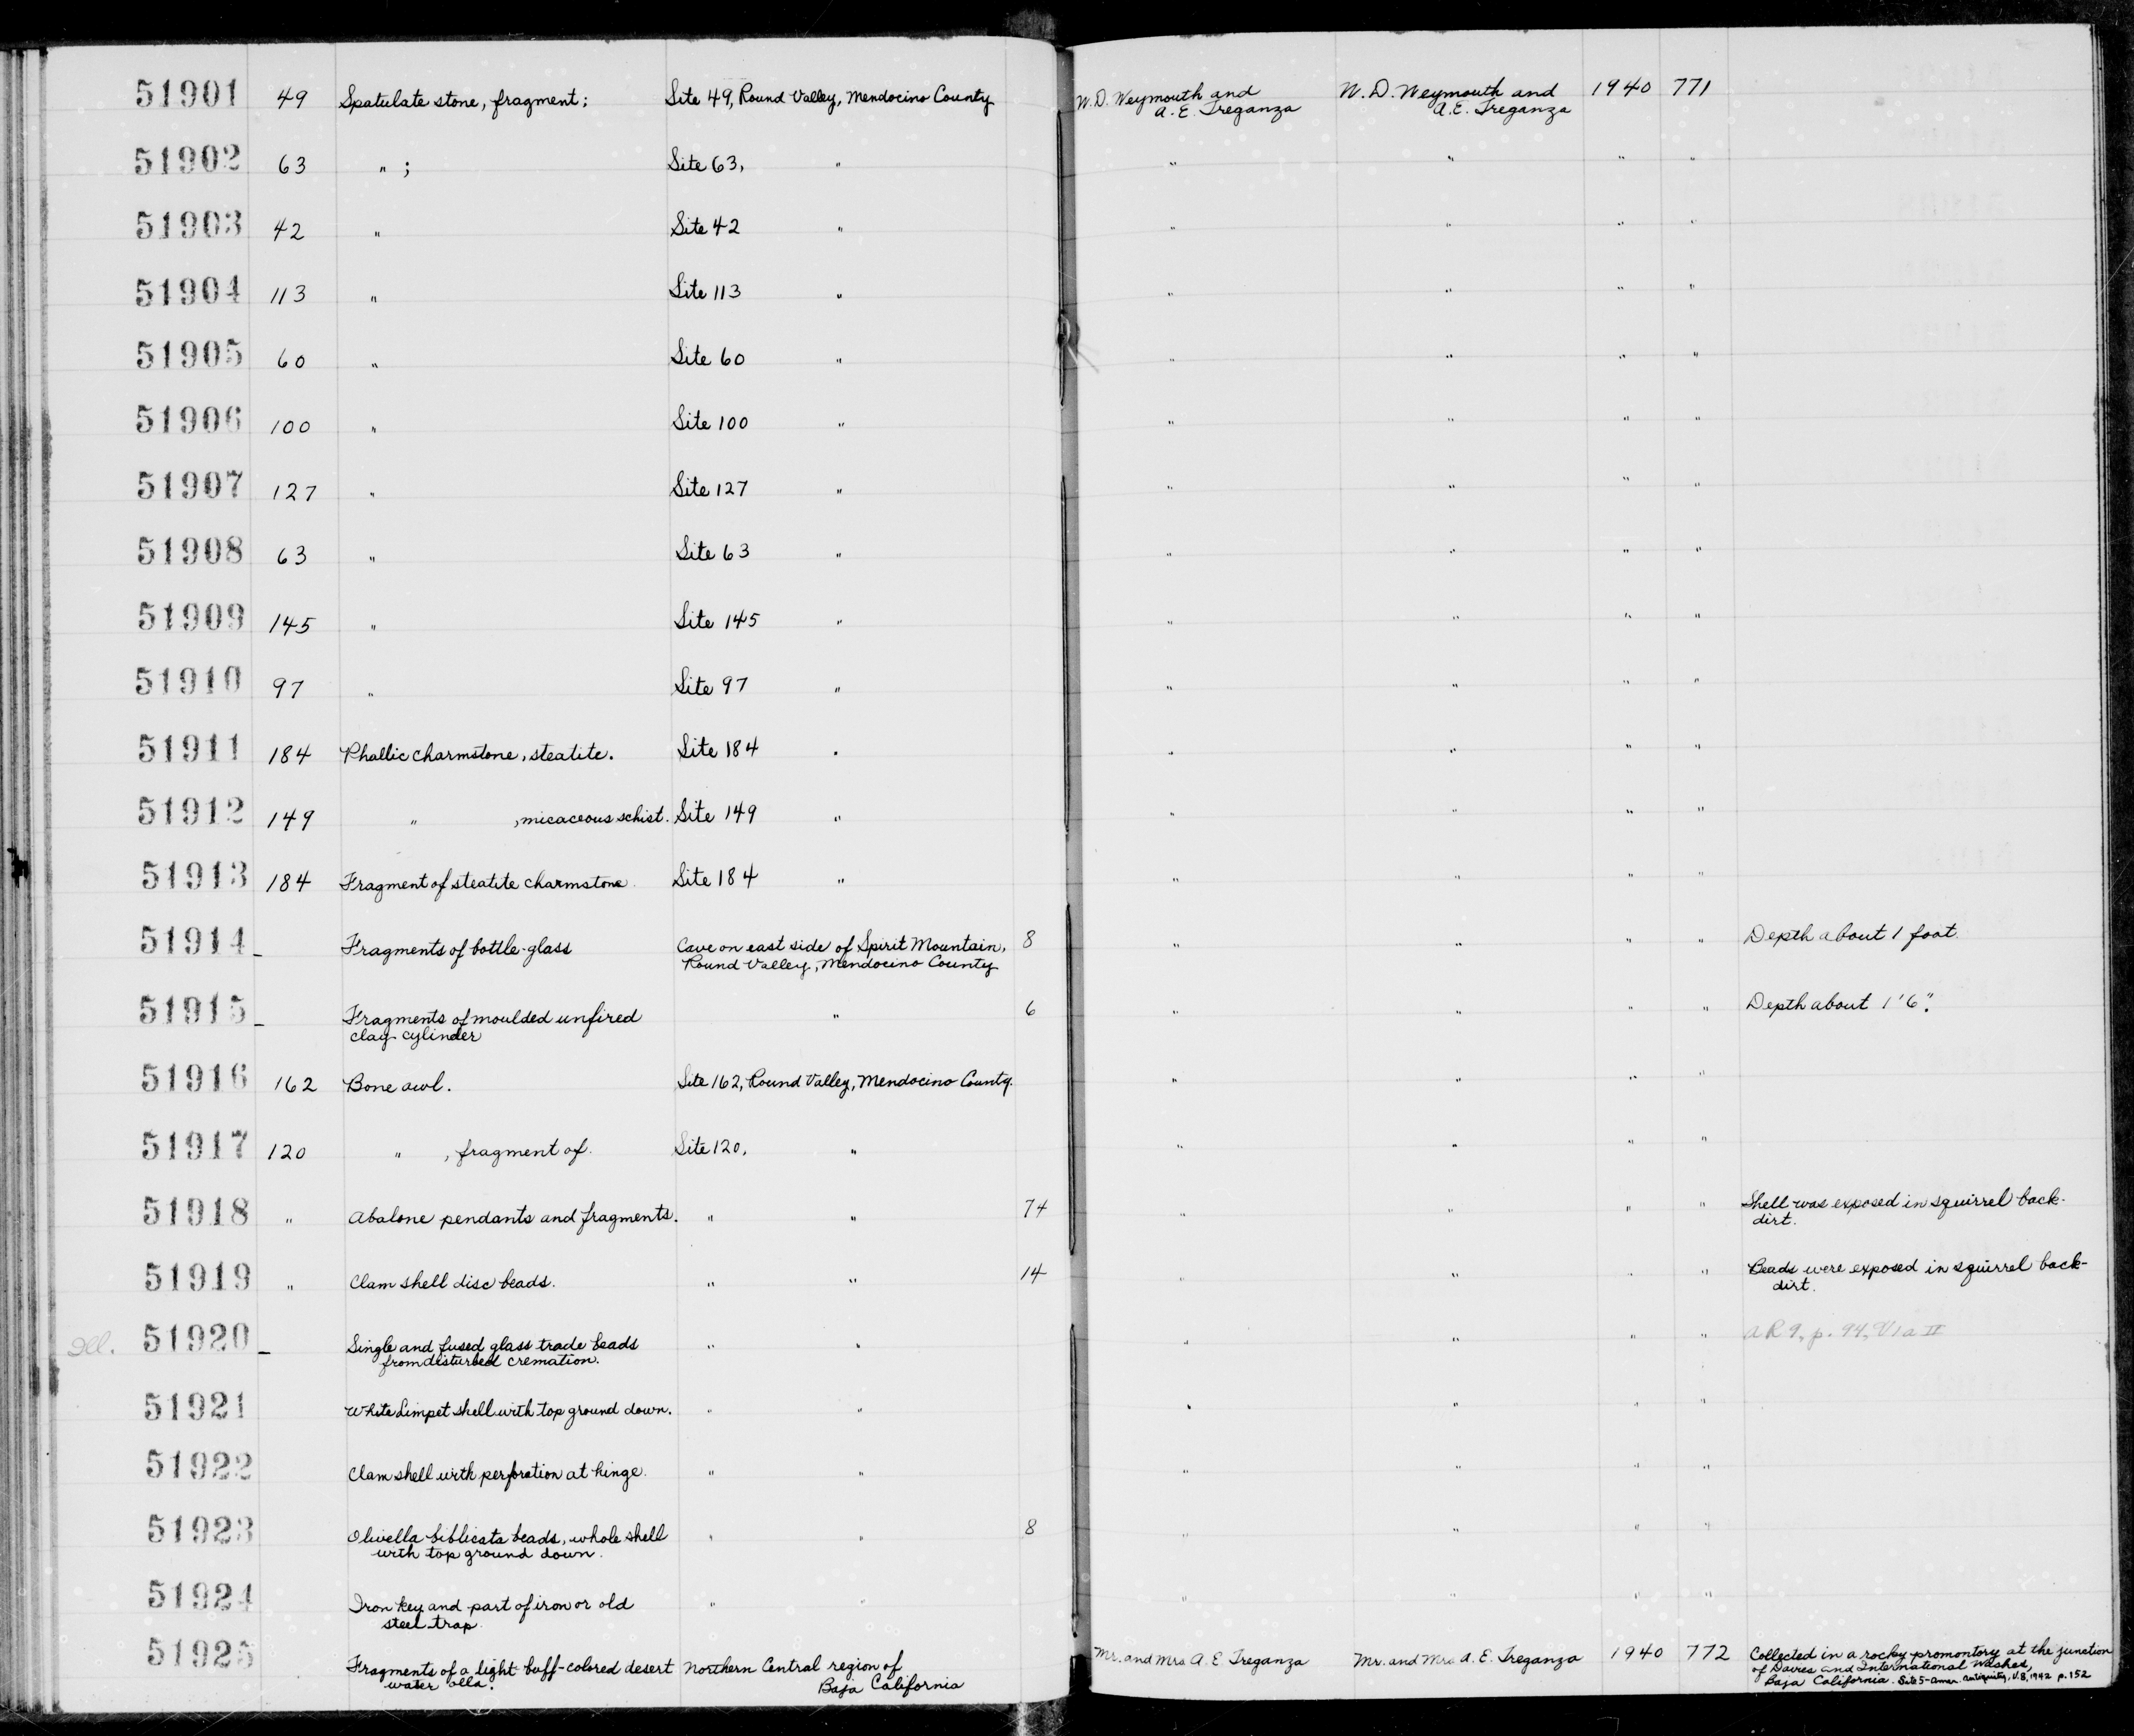 51901 49 Spatulate stone, fragment; Site 49, Round Valley, Mendocino County W. D. Weymouth and W. D. Weymouth and 1940 771
A. E. Treganza A. E. Treganza
51902 63 " ; Site 63, " " " " "
51903 42 " Site 42 " " " " "
51904 113 " Site 113 " " " " "
51905 60 " Site 60 " " " " "
51906 100 " Site 100 " " " " "
51907 127 " Site 127 " " " " "
51908 63 " Site 63 " " " " "
51909 145 " Site 145 " " " " "
51910 97 " Site 97 " " " " "
51911 184 Phallic charmstone, steatite. Site 184 " " " " "
51912 149 " , micaceous schist. Site 149 " " " " "
51913 184 Fragment of steatite charmstone. Site 184 " " " " "
51914 - Fragments of bottle-glass Cave on east side of Spirit Mountain, 8 " " " " Depth about 1 foot.
Round Valley, Mendocino County
51915 - Fragments of moulded unfired " 6 " " " " Depth about 1'6".
clay cylinder
51916 162 Bone awl. Site 162, Round Valley, Mendocino County. " " " "
51917 120 " , fragment of. Site 120, " " " " "
51918 " Abalone pendants and fragments. " " 74 " " " " Shell was exposed in squirrel back-
dirt.
51919 " Clam shell disc beads. " " 14 " " " " Beads were exposed in squirrel back-
dirt.
Ill. 51920 - Single and fused glass trade beads " " " " " " AR 9, p. 94, VIa II
from disturbed cremation.
51921 White Limpet shell with top ground down. " " " " " "
51922 Clam shell with perforation at hinge. " " " " " "
51923 Olivella biblicata beads, whole shell " " 8 " " " "
with top ground down.
51924 Iron key and part of iron or old " " " " " "
steel trap.
51925 Fragments of a light buff-colored desert Northern Central region of Mr. and Mrs A. E. Treganza Mr. and Mrs A. E. Treganza 1940 772 Collected in a rocky promontory at the junction
water olla. Baja California of Davies and International Washes,
Baja California. Site 5-Amer. Antiquity, V.8, 1942 p.152